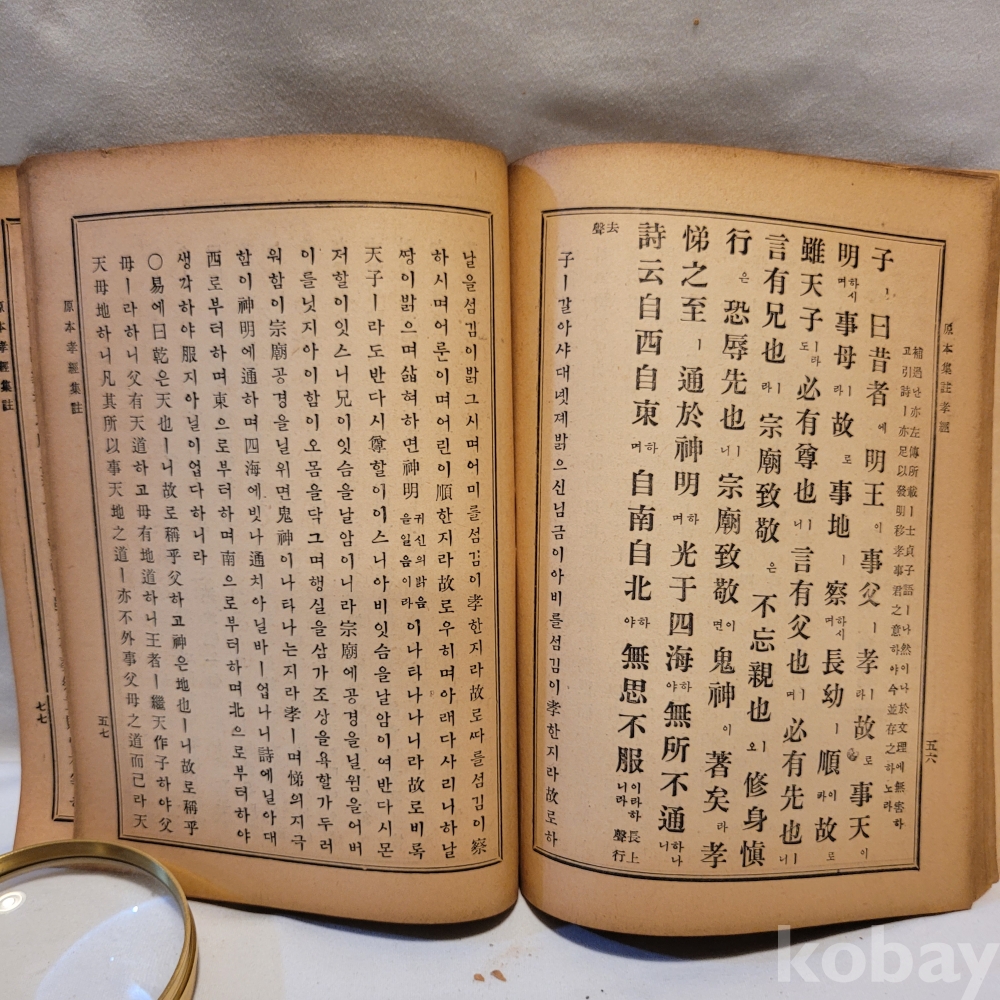 原本集註孝經
補過난亦左傳所載ㅣ士貞子語ㅣ나然이나於文理에無害하
고引詩ㅣ亦足以發明移孝事君之意하야今並存之하노라
五六
子ㅣ曰昔者에明王이事父ㅣ孝라故로事天이
明하시며事母ㅣ라故로事地ㅣ察하시며長幼ㅣ順이라故로
雖天子ㅣ라도必有尊也ㅣ니言有父也ㅣ며必有先也ㅣ니
言有兄也ㅣ라宗廟致敬은不忘親也ㅣ오修身愼
行은恐辱先也ㅣ니宗廟致敬이면鬼神이著矣라孝
悌之至ㅣ通於神明하며光于四海하야無所不通하나니
詩云自西自東하며自南自北하야無思不服이라하니라
長上聲行
去聲
子ㅣ갈아샤대녯졔밝으신님금이아비를섬김이孝한지라故로하
날을섬김이밝그시며어미를섬김이孝한지라故로따를섬김이察
하시며어룬이며어린이順한지라故로우히며아래다사리나하날
땅이밝으며삷혀하면神明귀신의밝음을일음이라이나타나나니라故로비록
天子ㅣ라도반다시尊할이이스니아비잇슴을날암이여반다시몬
저할이잇스니兄이잇슴을날암이니라宗廟에공경을닐윔을어버
이를닛지아이함이오몸을닥그며행실을삼가조상을욕할가두려
워함이宗廟공경을닐위면鬼神이나타나는지라孝ㅣ며悌의지극
함이神明에通하며四海에빗나通치아닐바ㅣ업나니詩에닐아대
西로부터하며東으로부터하며南으로부터하며北으로부터하야
생각하야服지아닐이업다하니라
○易에曰乾은天也ㅣ니故로稱乎父하고神은地也ㅣ니故로稱乎
母ㅣ라하니父有天道하고母有地道하니王者ㅣ繼天作子하야父
天母地하니凡其所以事天地之道ㅣ亦不外事父母之道而已라天
原本孝經集註
五七
原本孝經集註
七七
kobay